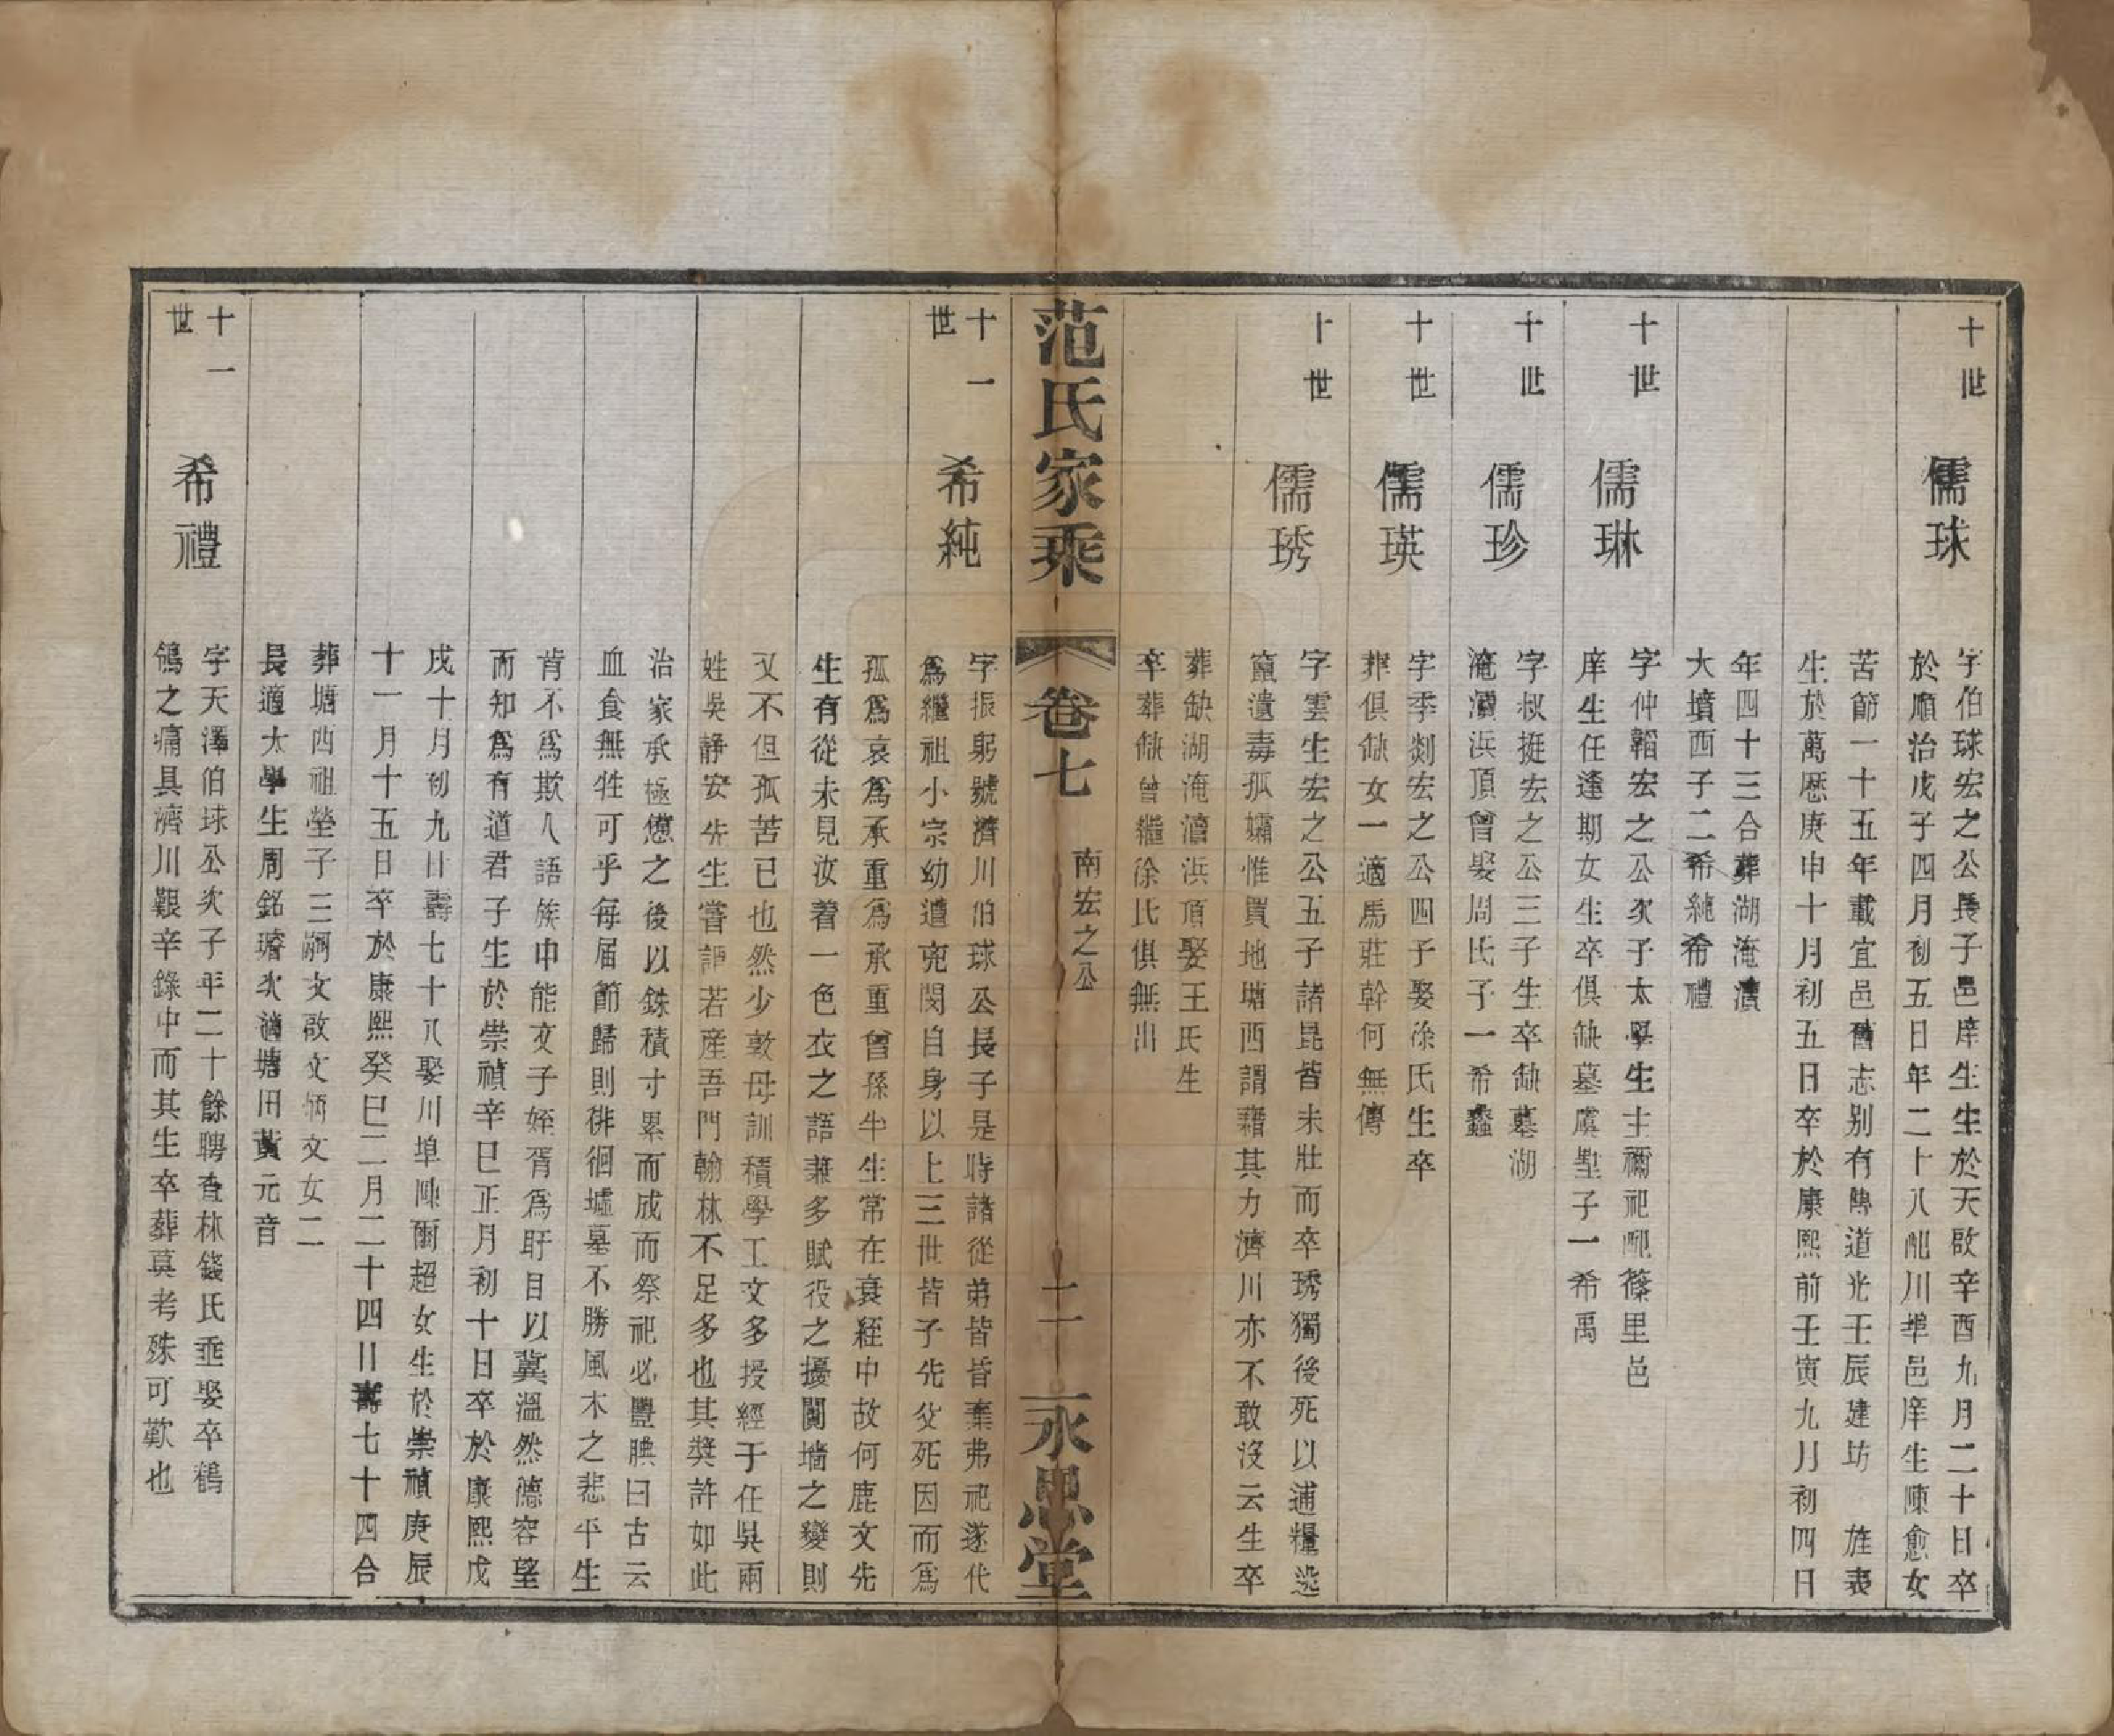 十世　儒球
字伯球宏之公長子邑庠生生於天啟辛酉九月二十日卒
於順治戊子四月初五日年二十八配川埠邑庠生陳愈女
苦節一十五年載宜邑舊志別有傳道光壬辰建坊　旌表
生於萬厯庚申十月初五日卒於康熙前壬寅九月初四日
年四十三合葬湖㳺瀆
大墳西子二希純希禮
十世　儒琳
字仲韜宏之公次子太學生主禰祀配篠里邑
庠生任逢期女生卒俱缺墓虞墅子一希禹
十世　儒珍
字叔挺宏之公三子生卒缺墓湖
淹瀆浜頂曾娶周氏子一希蠡
十世　儒瑛
字季剡宏之公四子娶徐氏生卒
葬俱缺女一適馬莊幹何無傳
十世　儒琇
字雲生宏之公五子諸昆皆未壯而卒琇獨後死以逋糧逃
竄遺毒孤孀惟買地塘西謂藉其力濟川亦不敢沒云生卒
葬缺湖淹瀆浜頂娶王氏生
卒葬缺曾繼徐氏俱無出
范氏家乘　卷七　南宏之公　二　永思堂
十一世　希純
字振躬號濟川伯球公長子是時諸從弟皆皆棄弗祀遂代
為繼祖小宗幼遭兇閔自身以上三世皆子先父死因而為
孤為哀為承重為承重曾孫半生常在衰絰中故何鹿文先
生有從未見汝着一色衣之語兼多賦役之擾鬩墻之變則
又不但孤苦已也然少敦母訓積學工文多授經于任吳兩
姓吳靜安先生嘗謂若産吾門翰林不足多也其獎許如此
治家承極憊之後以銖積寸累而成而祭祀必豐腆曰古云
血食無牲可乎每届節歸則徘徊墟墓不勝風木之悲平生
肯不為欺人語族中能文子姪胥為盱目以冀溫然德容望
而知為有道君子生於崇禎辛巳正月初十日卒於康熙戊
戌十月初九日壽七十八娶川埠陳爾超女生於崇禎庚辰
十一月十五日卒於康熙癸巳二月二十四日壽七十四合
葬塘西祖塋子三嗣文啟文炳文女二
長適太學生周銘璿次適塘田黃元音
十一世　希禮
字天澤伯球公次子年二十餘聘査林錢氏垂娶卒鶺
鴒之痛具濟川艱辛錄中而其生卒葬莫考殊可歎也